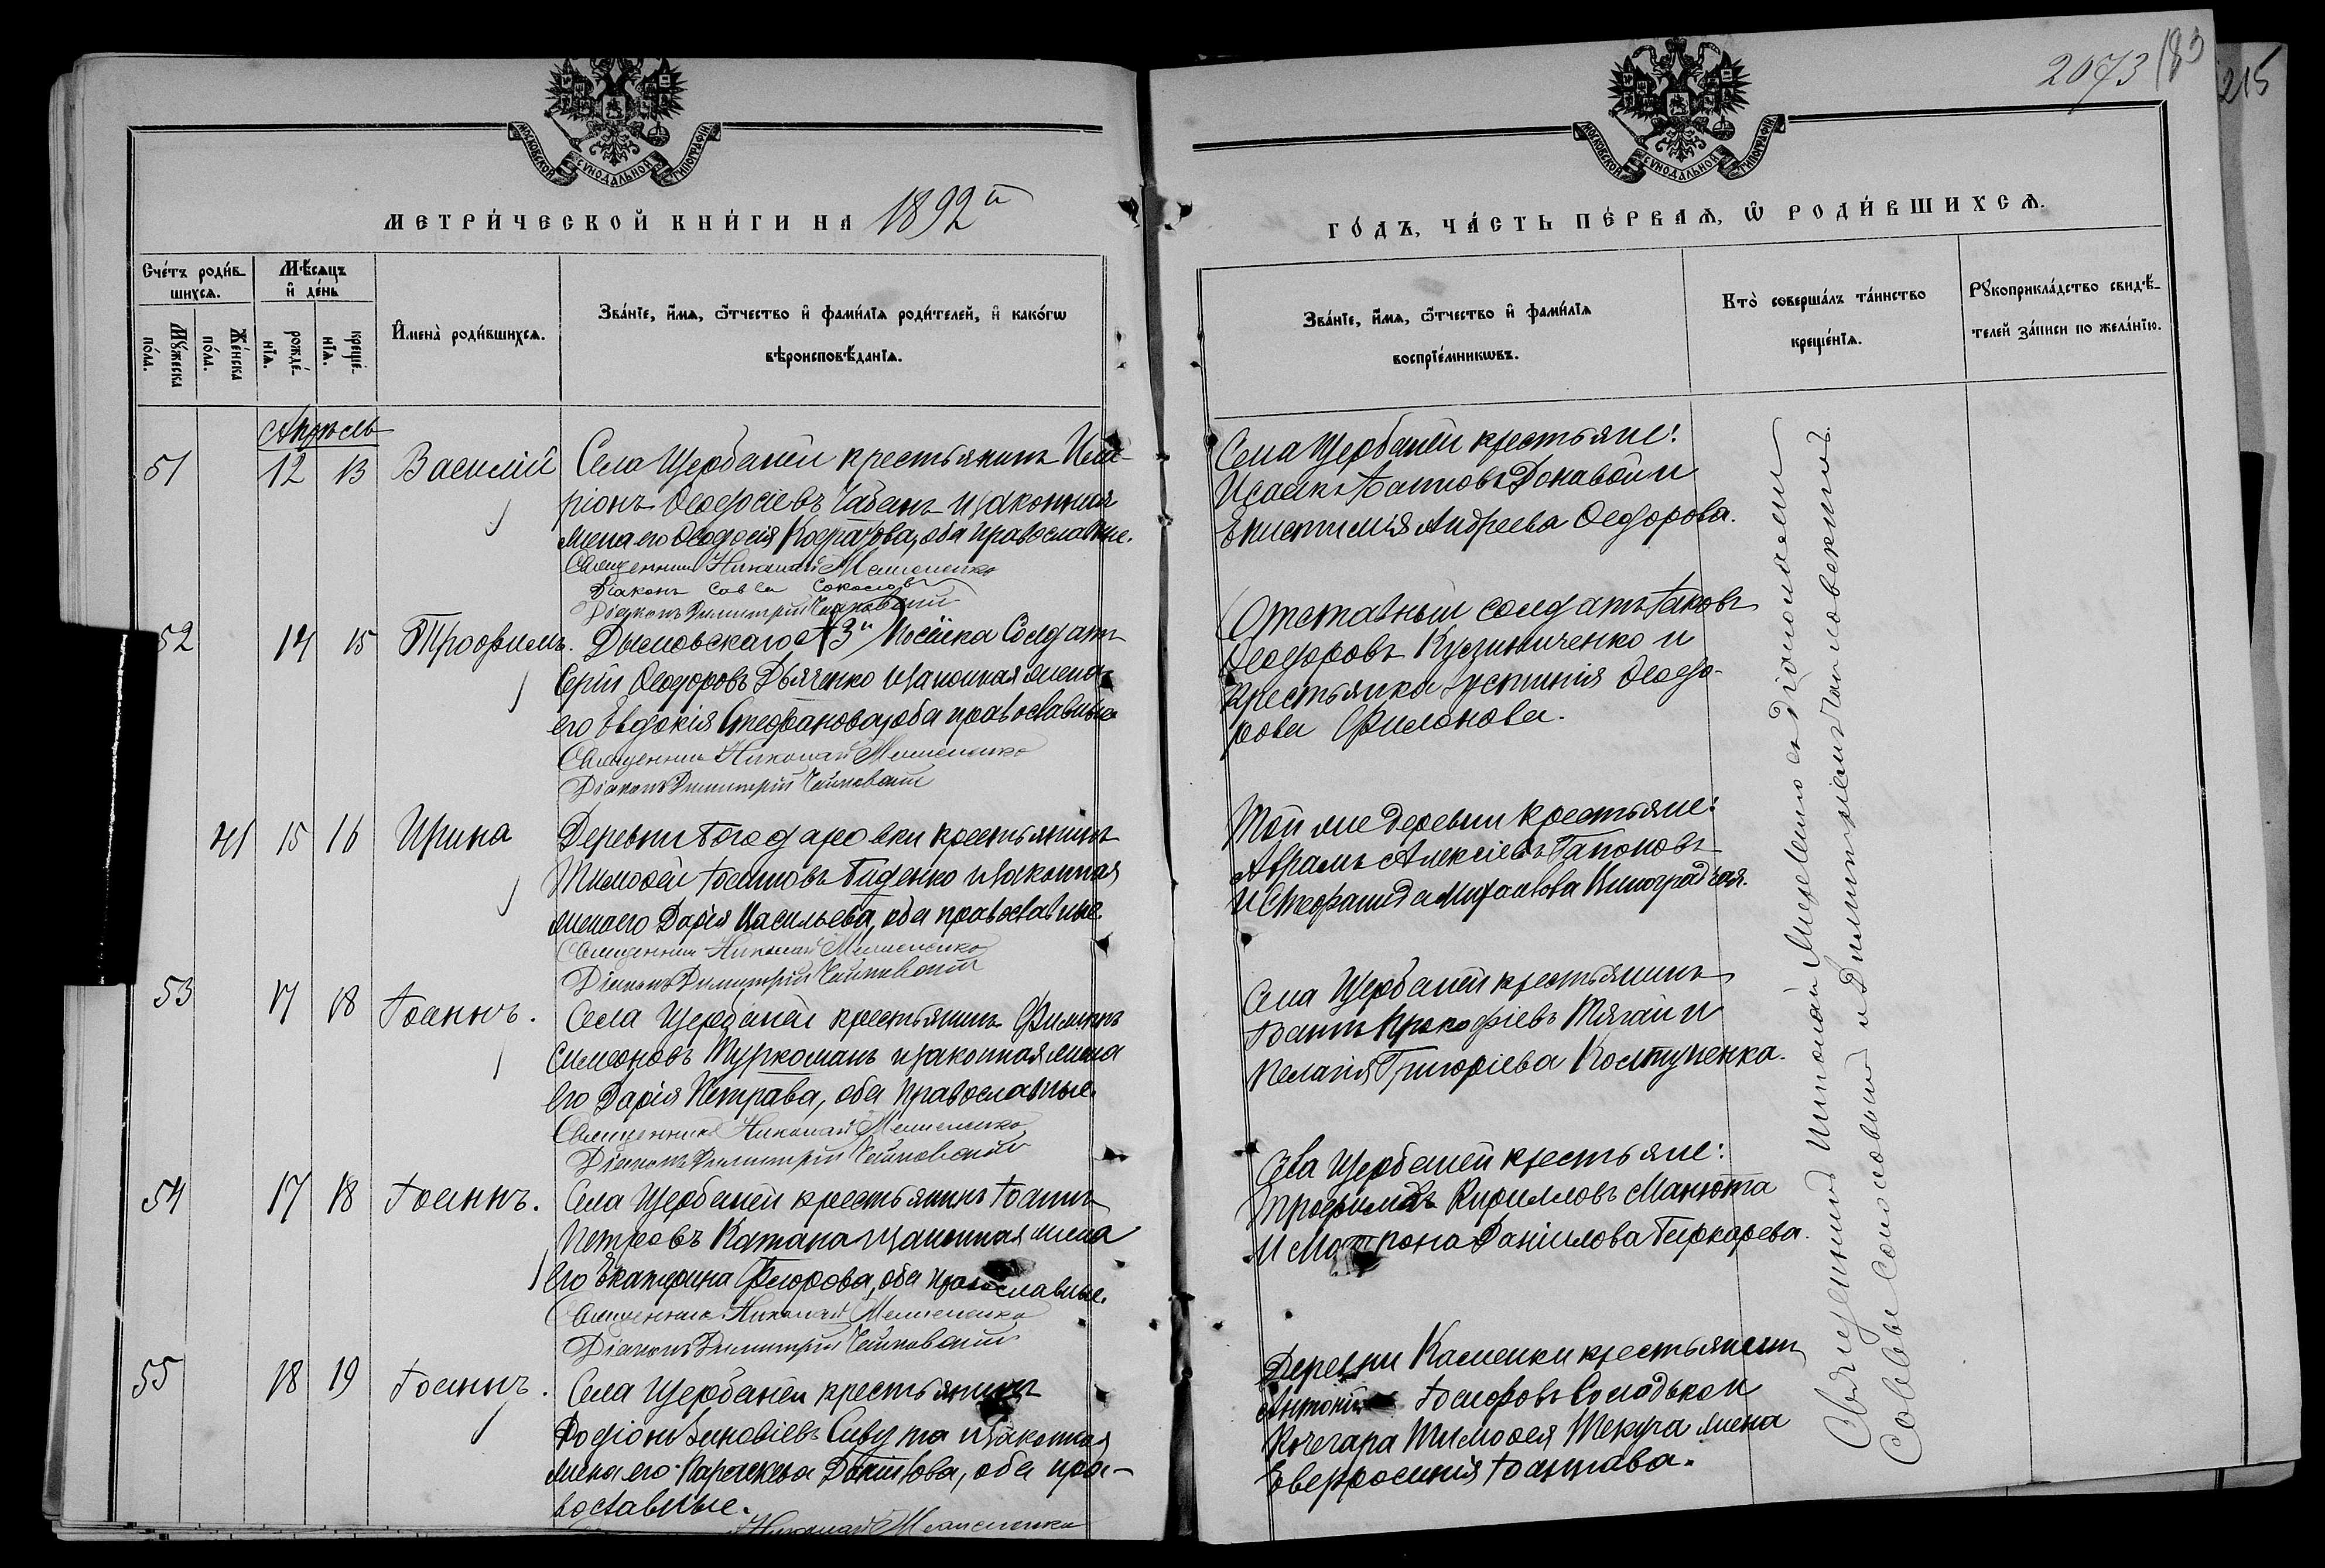 МОСКОВСКОЙ СѴНОДАЛЬНОЙ ТИПОГРАФІИ
МЕТРИ́ЧЕСКОЙ КНИ́ГИ НА 1892й
Сче́тъ роди́в-
шихсѧ.
Мѣ́сѧцъ
и҆ де́нь
Мꙋ́жеска
по́ла.
Же́нска
по́ла.
рожде́-
нїѧ.
креще́-
нїѧ.
И҆мена̀ роди́вшихсѧ.
Зва́нїе, и҆́мѧ, ѻ҆́тчество и҆ фами́лїѧ роди́телей, и҆ како́гѡ
вѣроисповѣ́данїѧ.
Апрѣль
51 12 13 Василій Села Щербаней крестьянинъ Ила-
ріонъ Ѳеодосіевъ Чабанъ и законная
жена его Ѳеодосія Кодратова, оба православные.
Священникъ Николай
Діаконъ Савва Соколов
Діаконъ Димитрій Чайковскій
52 14 15 Трофимъ. Дымовскаго №3й посёлка Солдатъ
Сергій Ѳеодоровъ Дьяченко и законная жена
его Евдокія Стефанова, оба православные
Священникъ Николай
Діаконъ Димитрій Чайковскій
41 15 16 Ирина Деревни Богодаровки крестьянинъ
Тимоѳей Іоанновъ Гиденко и законная
жена его Дарія Васильева, оба православные.
Священникъ Николай
Діаконъ Димитрій Чайковскій
53 17 18 Іоаннъ. Села Щербаней крестьянинъ Филиппъ
Симеоновъ Туркоманъ и законная жена
его Дарія Петрова, оба православные.
Священникъ Николай
Діаконъ Димитрій Чайковскій
54 17 18 Іоаннъ. Села Щербаней крестьянинъ Іоаннъ
Петровъ Катана и законная жена
его Екатерина Флорова, оба православные.
Священникъ Николай
Діаконъ Димитрій Чайковскій
55 18 19 Іоаннъ. Села Щербаней крестьянинъ
Родіонъ Зиновіевъ Сивула и законная
жена его Параскева Данилова, оба пра-
вославные.
Николай
2073 183
215
МОСКОВСКОЙ СѴНОДАЛЬНОЙ ТИПОГРАФІИ
ГО́ДЪ, ЧА́СТЬ ПЕ́РВАѦ, Ѡ҆ РОДИ́ВШИХСѦ.
Зва́нїе, и҆́мѧ, ѻ҆́тчество и҆ фами́лїѧ
воспрїе́мникѡвъ.
Кто̀ соверша́лъ та́инство
креще́нїѧ.
Рꙋкоприкла́дство свидѣ́-
телей за́писи по жела́нїю.
Села Щербаней крестьяне:
Исаакъ Іоанновъ Донавой и
Епистимія Андреева Ѳеодорова.
Отставный солдатъ Іаковъ
Ѳеодоровъ Кузьмиченко и
крестьянка Іустинія Ѳеодо-
рова Филонова.
Той же деревни крестьяне:
Аврамъ Алексіевъ Гапоновъ
и Стефанида Михаилова Виноградская.
Села Щербаней крестьянинъ
Іоаннъ Прокофіевъ Тягай и
Пелагія Григоріева Костученка.
Села Щербаней крестьяне:
Трофимъ Кирилловъ Манюта
и Матрона Даніилова Гиркарева.
Деревни Каменки крестьянинъ
Антоній Іосифовъ Соладько и
Кочегара Тимоѳея Текуча жена
Евфросинія Іоаннова.
Священникъ Николай съ Діаконами
Саввою Соколовымъ и Димитріемъ Чайковскимъ.